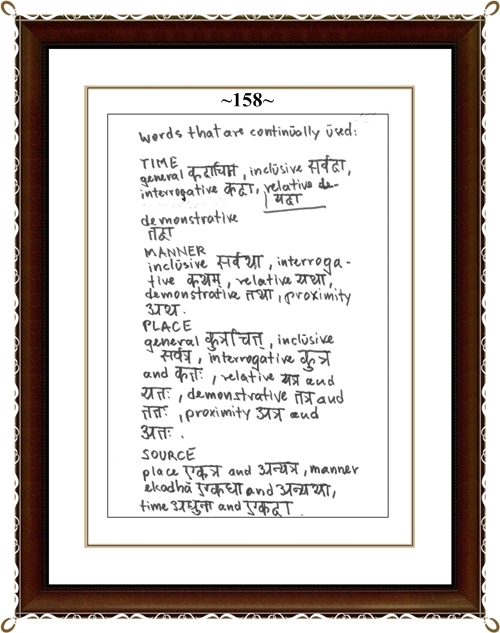 ~158~
words that are continually used:
TIME
general कदाचित्, inclusive सर्वदा,
interrogative कदा, relative de-
यदा
demonstrative
तदा
MANNER
inclusive सर्वथा, interroga-
tive कथम्, relative यथा,
demonstrative तथा, proximity
अथ.
PLACE
general कुत्रचित्, inclusive
सर्वत्र, interrogative कुत्र
and कतः, relative यत्र and
यतः, demonstrative तत्र and
ततः, proximity अत्र and
अतः.
SOURCE
place एकत्र and अन्यत्र, manner
ekadhā एकधा and अन्यथा,
time अधुना and एकदा